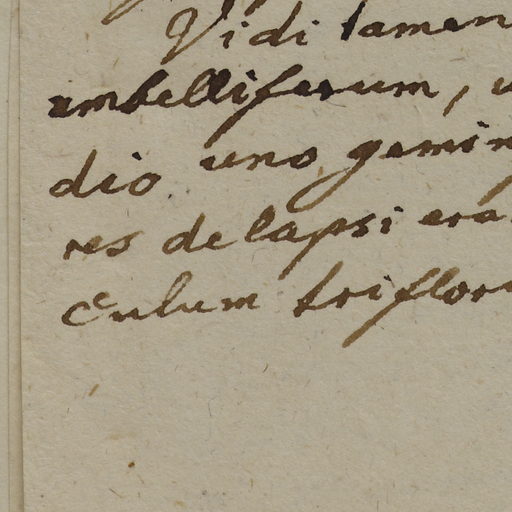 Vidi tamen
umbelliferum,
dio uno gemin
res delapsi era
culum triflor